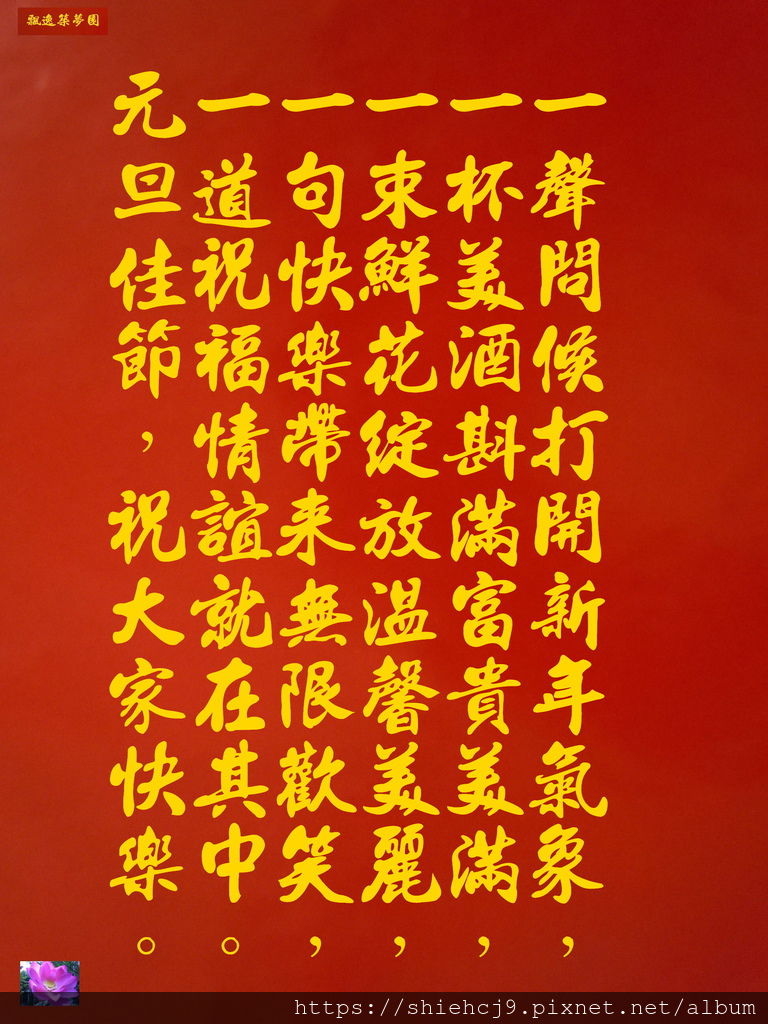 飄逸築夢園
一聲問候打開新年氣象，
一杯美酒斟滿富貴美滿，
一束鮮花綻放溫馨美麗，
一句快樂帶来無限歡笑，
一道祝福情誼就在其中。
元旦佳節，祝大家快樂。
https://shiehcj9.pixnet.net/album